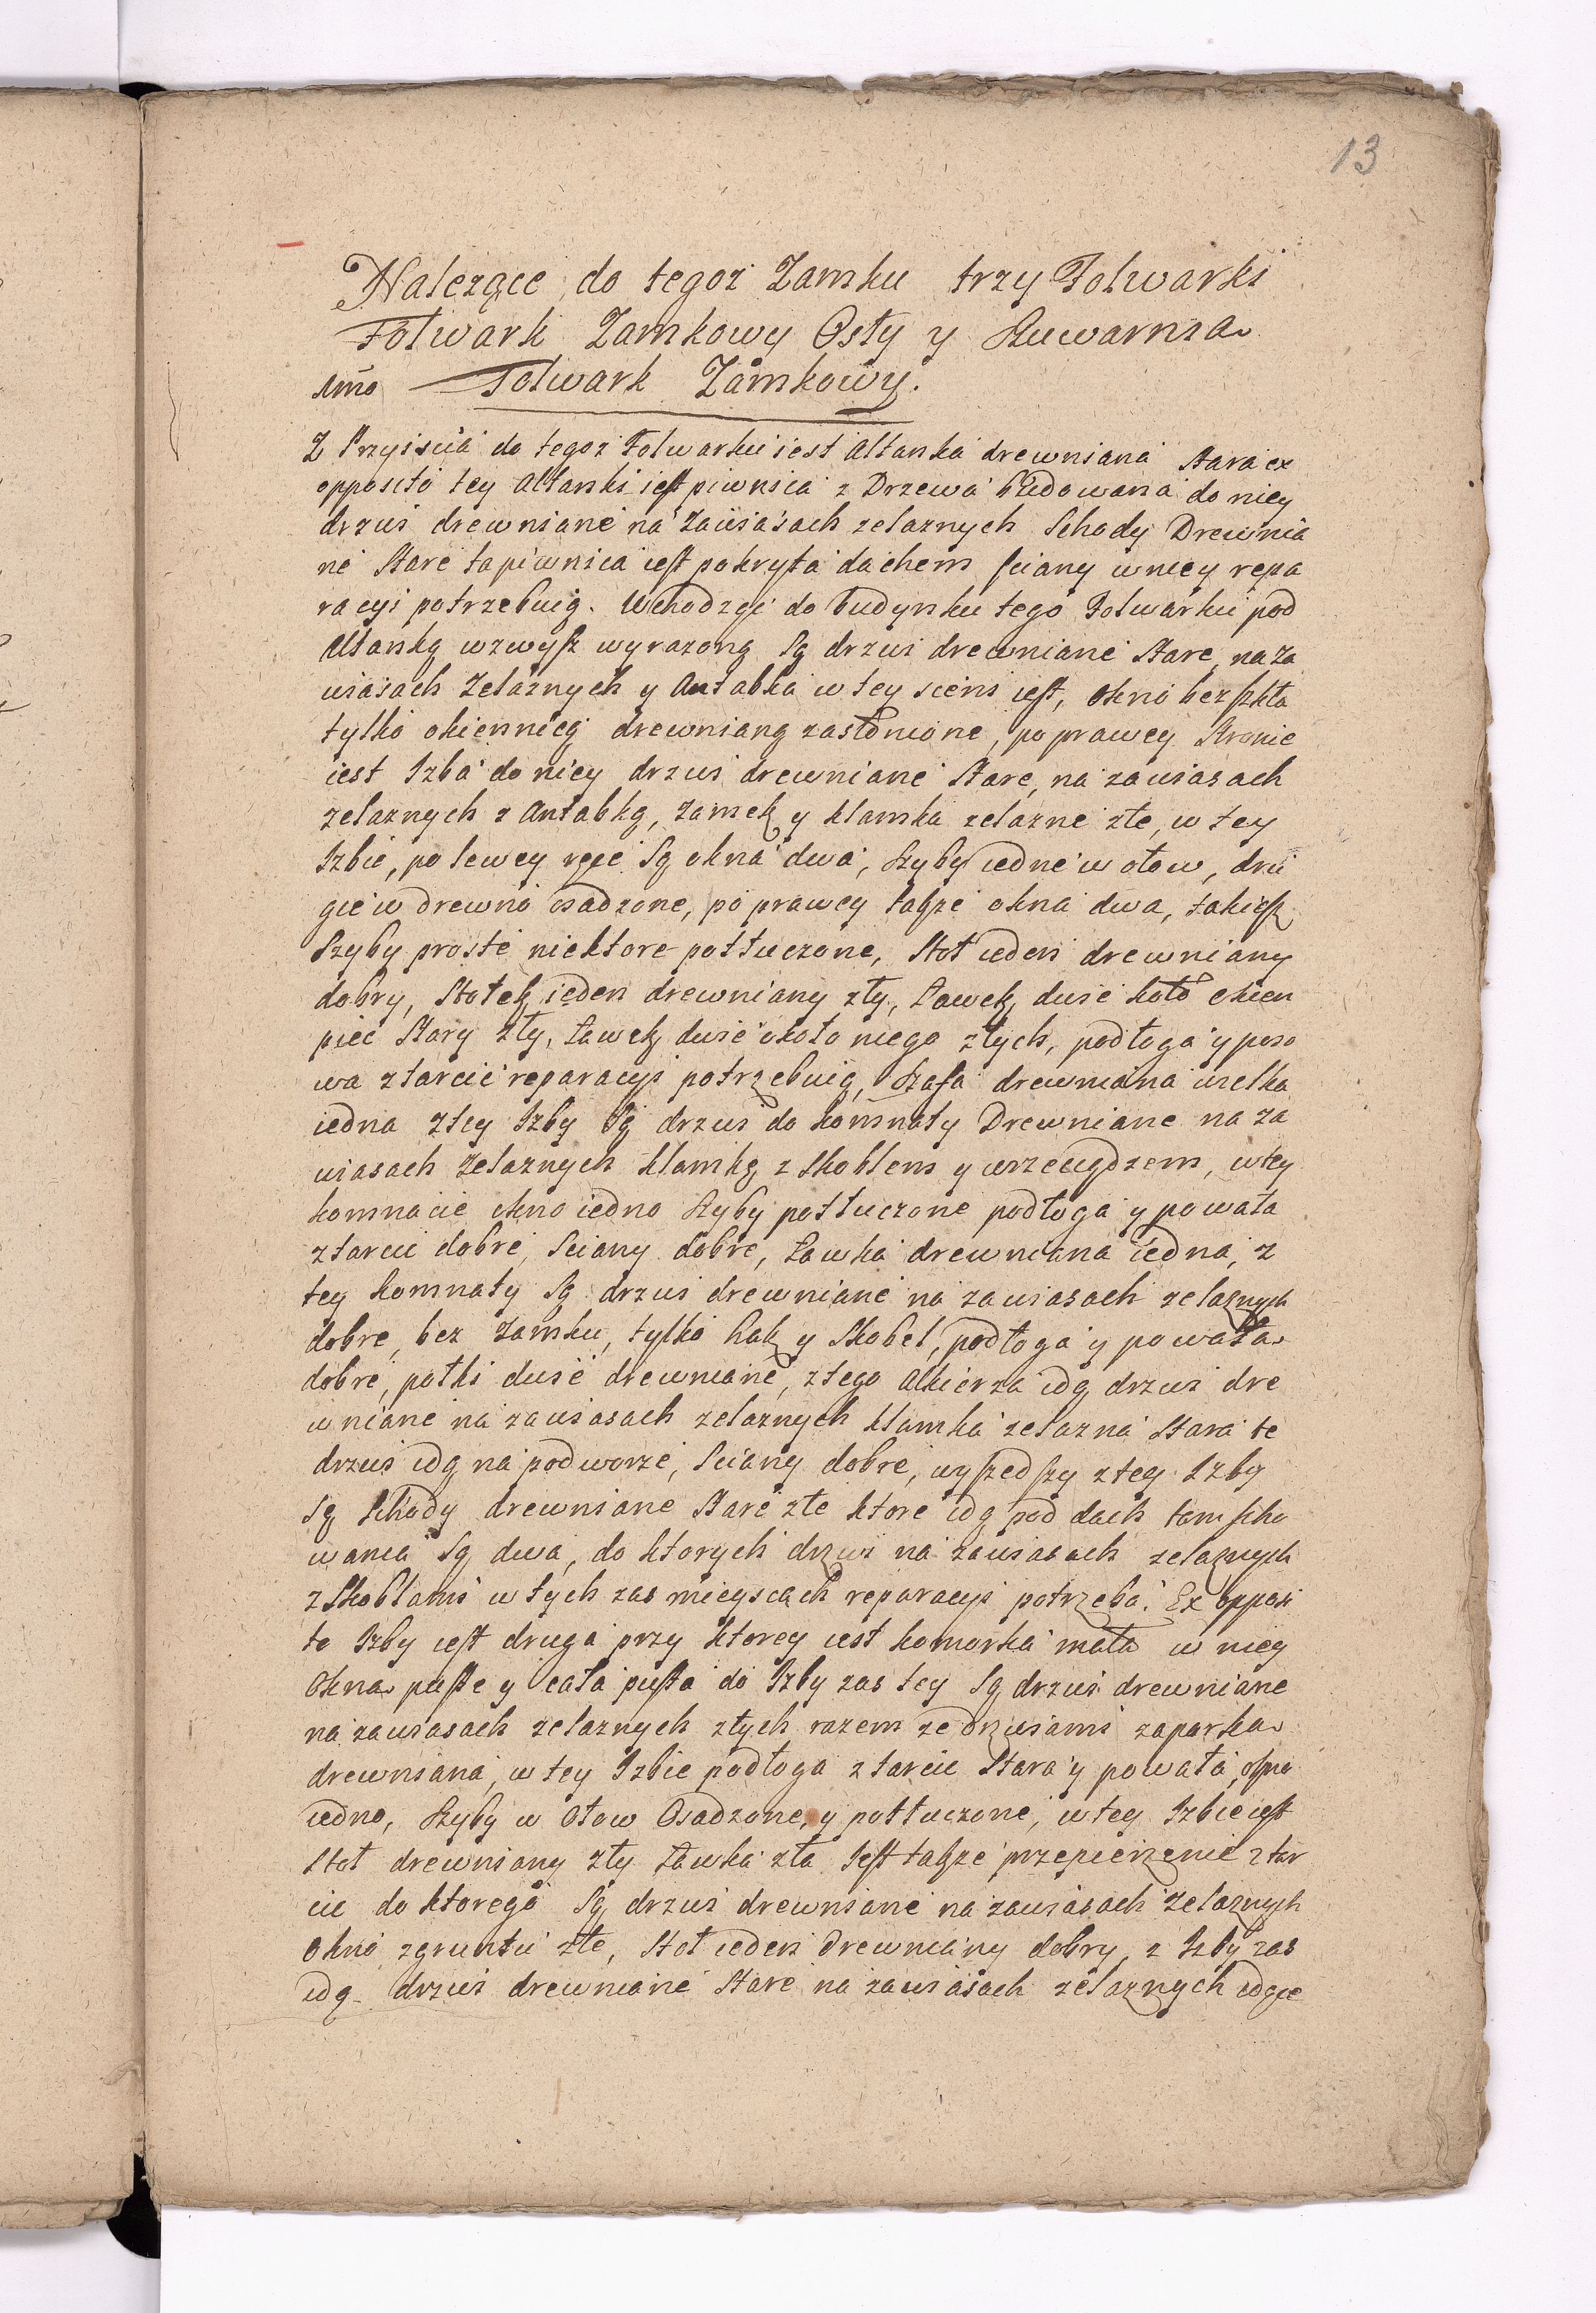 13
Należące do tegoż Zamku trzy Folwarki
Folwark Zamkowy Osły y Suwarnia
1mo Folwark Zamkowy.
Z Przyiscia do tegoż Folwarku iest Altanka drewniana stara ex
opposito tey Altanki iest piwnica z Drzewa budowana do niey
drzwi drewniane na zawiasach zelaznych Schody Drewnia
ne Stare ta piwnica iest pokryta dachem sciany w niey repa
racyi potrzebuią. Wchodząc do budynku tego Folwarku pod
Altanką wzwysz wyrazoną są drzwi drewniane Stare, na za
wiasach zelaznych y Antabka w tey sieni iest, okno bez szkła
tylko okiennicą drewnianą zasłonione, po prawey Stronie
iest Izba do niey drzwi drewniane Stare, na zawiasach
zelaznych z Antabką, zamek y klamka zelazne złe, w tey
Izbie, po lewey ręce są okna dwa, szyby iedne w ołow, dru
gie w drewno osadzone, po prawey takze okna dwa, takiesz
Szyby proste niektore potłuczone, Stoł ieden drewniany
dobry, Stołek ieden drewniany zły, Ławek dwie koło okien
piec Stary zły, Ławek dwie około niego złych, podłoga y poso
wa z tarcic reparacyi potrzebuią, Szafa drewniana wielka
iedna z tey Izby są drzwi do komnaty Drewniane na za
wiasach zelaznych klamką z skoblem y wrzeciądzem, w tey
komnacie okno iedno szyby potłuczone podłoga y powała
z tarcic dobre, Sciany dobre, Ławka drewniana iedna, z
tey komnaty są drzwi drewniane na zawiasach zelaznych
dobre, bez zamku, tylko hak y Skobel, podłoga y powała
dobre, połki dwie drewniane, z tego Alkierza idą drzwi dre
wniane na zawiasach zelaznych klamka zelazna Stara te
drzwi idą na podworze, Sciany dobre, wyszedszy z tey Izby
są Schody drewniane Stare złe ktore idą pod dach tam scho
wania są dwa, do ktorych drzwi na zawiasach zelaznych
z Skoblami w tych zas mieyscach reparacyi potrzeba. Ex opposi
to Izby iest druga przy ktorey iest komorka mała w niey
Okna puste y cała pusta do Izby zas tey są drzwi drewniane
na zawiasach zelaznych złych razem ze drzwiami zaporka
drewniana, w tey Izbie podłoga z tarcic Stara y powała, okno
iedno, szyby w ołow Osadzone, y potłuczone, w tey Izbie iest
Stoł drewniany zły Ławka zła Jest takze przepierzenie z tar
cic do ktorego są drzwi drewniane na zawiasach zelaznych
Okno zgruntu złe, Stoł ieden drewniany dobry, z Izby zas
idą drzwi drewniane Stare na zawiasach zelaznych idące